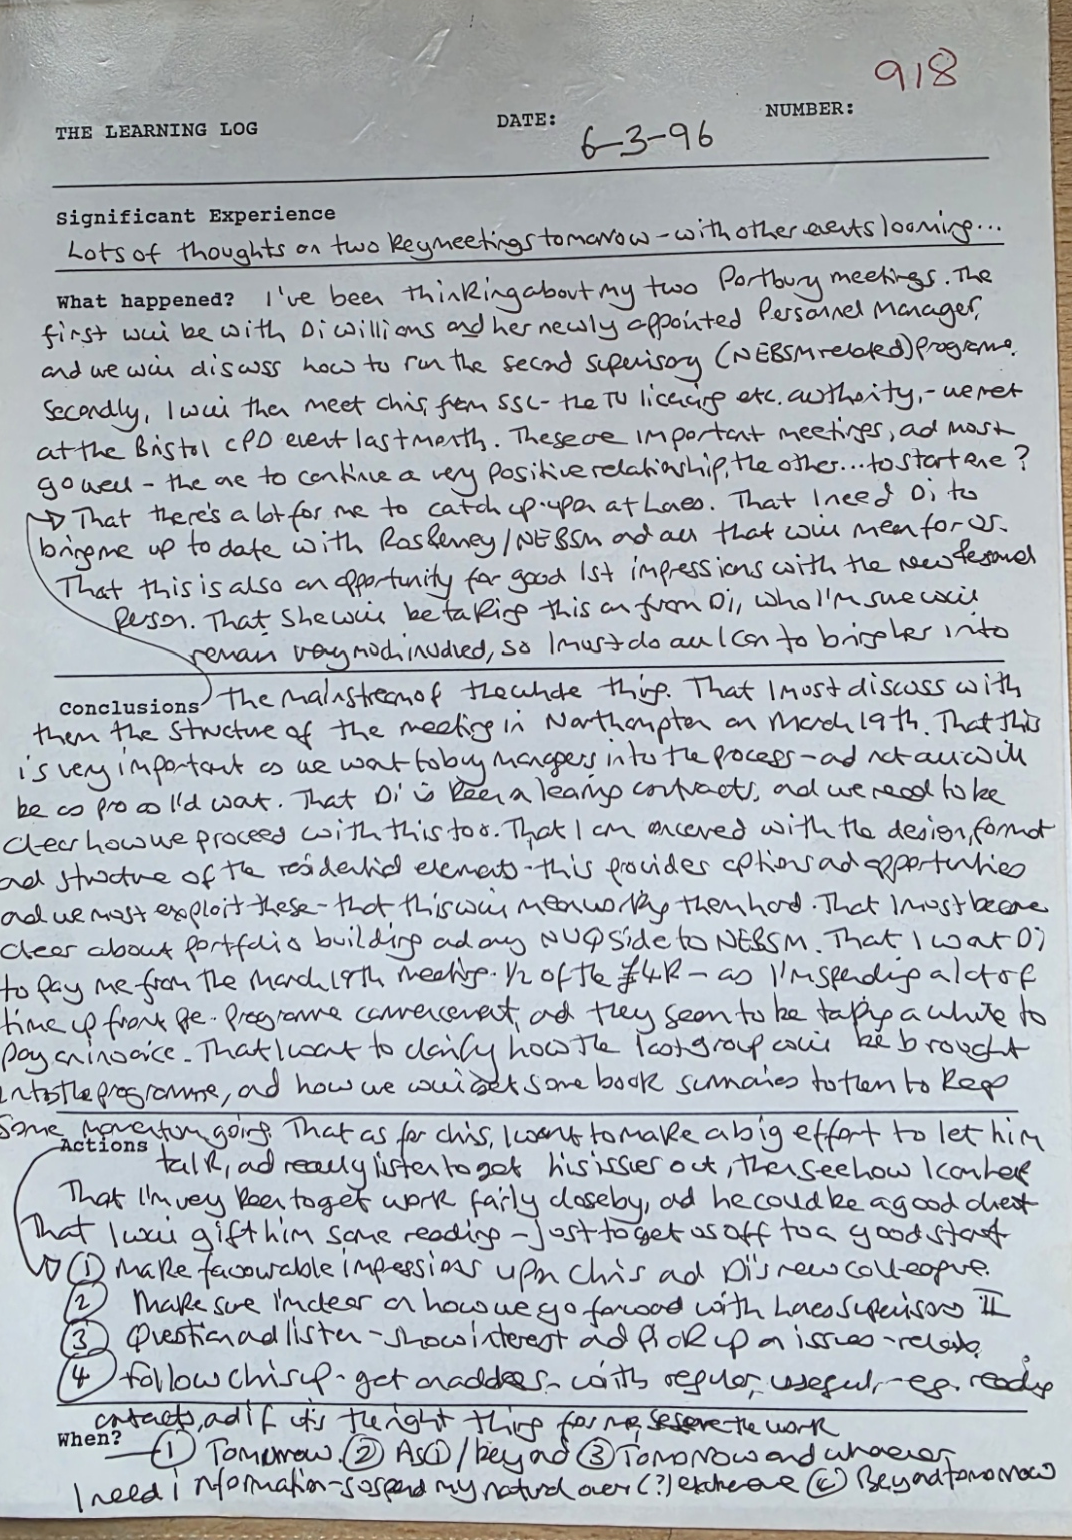 918
THE LEARNING LOG DATE: 6-3-96 NUMBER:
Significant Experience
Lots of thoughts on two key meetings tomorrow - with other events looming...
What happened? I've been thinking about my two Portbury meetings. The
first will be with Di Willians and her newly appointed Personnel Manager,
and we will discuss how to run the second supervisory (NEBSM related) programme.
Secondly, I will then meet Chris, from SSL - the TV licencing etc. authority, - we met
at the Bristol CPD event last month. These are important meetings, and must
go well - the one to continue a very positive relationship, the other... to start one?
That there's a lot for me to catch up upon at Laes. That I need Di to
bring me up to date with /NEBSM and all that will mean for us.
That this is also an opportunity for good 1st impressions with the new Personnel
Person. That she will be taking this on from Di, who I'm sure will
remain very much involved, so I must do all I can to bring her into
Conclusions the mainstream of the whole thing. That I must discuss with
them the structure of the meeting in Northampton on March 19th. That this
is very important as we want to buy managers into the process - and not all will
be as pro as I'd want. That Di is keen on learning contracts, and we need to be
clear how we proceed with this too. That I am concerned with the design, format
and structure of the residential elements - this provides options and opportunities
and we must exploit these - that this will mean working them hard. That I must become
clear about portfolio building and any NVQ side to NEBSM. That I want Di
to pay me from the March 19th meeting. 1/2 of the £4K - as I'm spending a lot of
time up front pre-programme commencement, and they seem to be taking a while to
pay an invoice. That I want to clarify how the last group will be brought
into the programme, and how we will get some book summaries to them to keep
some momentum going. That as for Chris, I want to make a big effort to let him
Actions talk, and really listen to get his issues out, then see how I can help
That I'm very keen to get work fairly closeby, and he could be a good client
That I will gift him some reading - just to get us off to a good start
① Make favourable impressions upon Chris and Di's new colleague.
② Make sure I'm clear on how we go forward with Laes Supervisors II
③ Question and listen - show interest and pick up on issues - relate.
④ Follow Chris up - get an address - with regular, useful, - eg. reading
contacts, and if it's the right thing for me, the work
When? ① Tomorrow. ② As ① / beyond ③ Tomorrow and whenever
I need information - suspend my natural over (?) ④ Beyond tomorrow